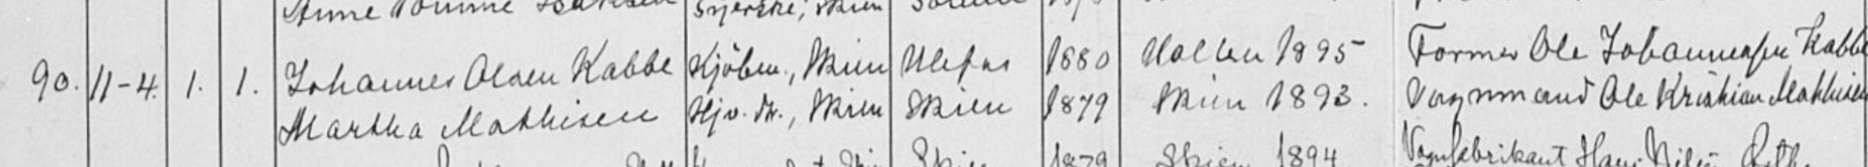 Syerske, Skien
90. 11-4. 1. 1. Johannes Olsen Kabbe Kjöbm., Skien Ulefos 1880 Hollen 1895 Former Ole Johannesen Kabbe
Martha Mathisen Hjv. Dr., Skien Skien 1879 Skien 1893. Vognmand Ole Kristian Mathisen
Skien 1879 Skien 1894 Vognfabrikant Hans